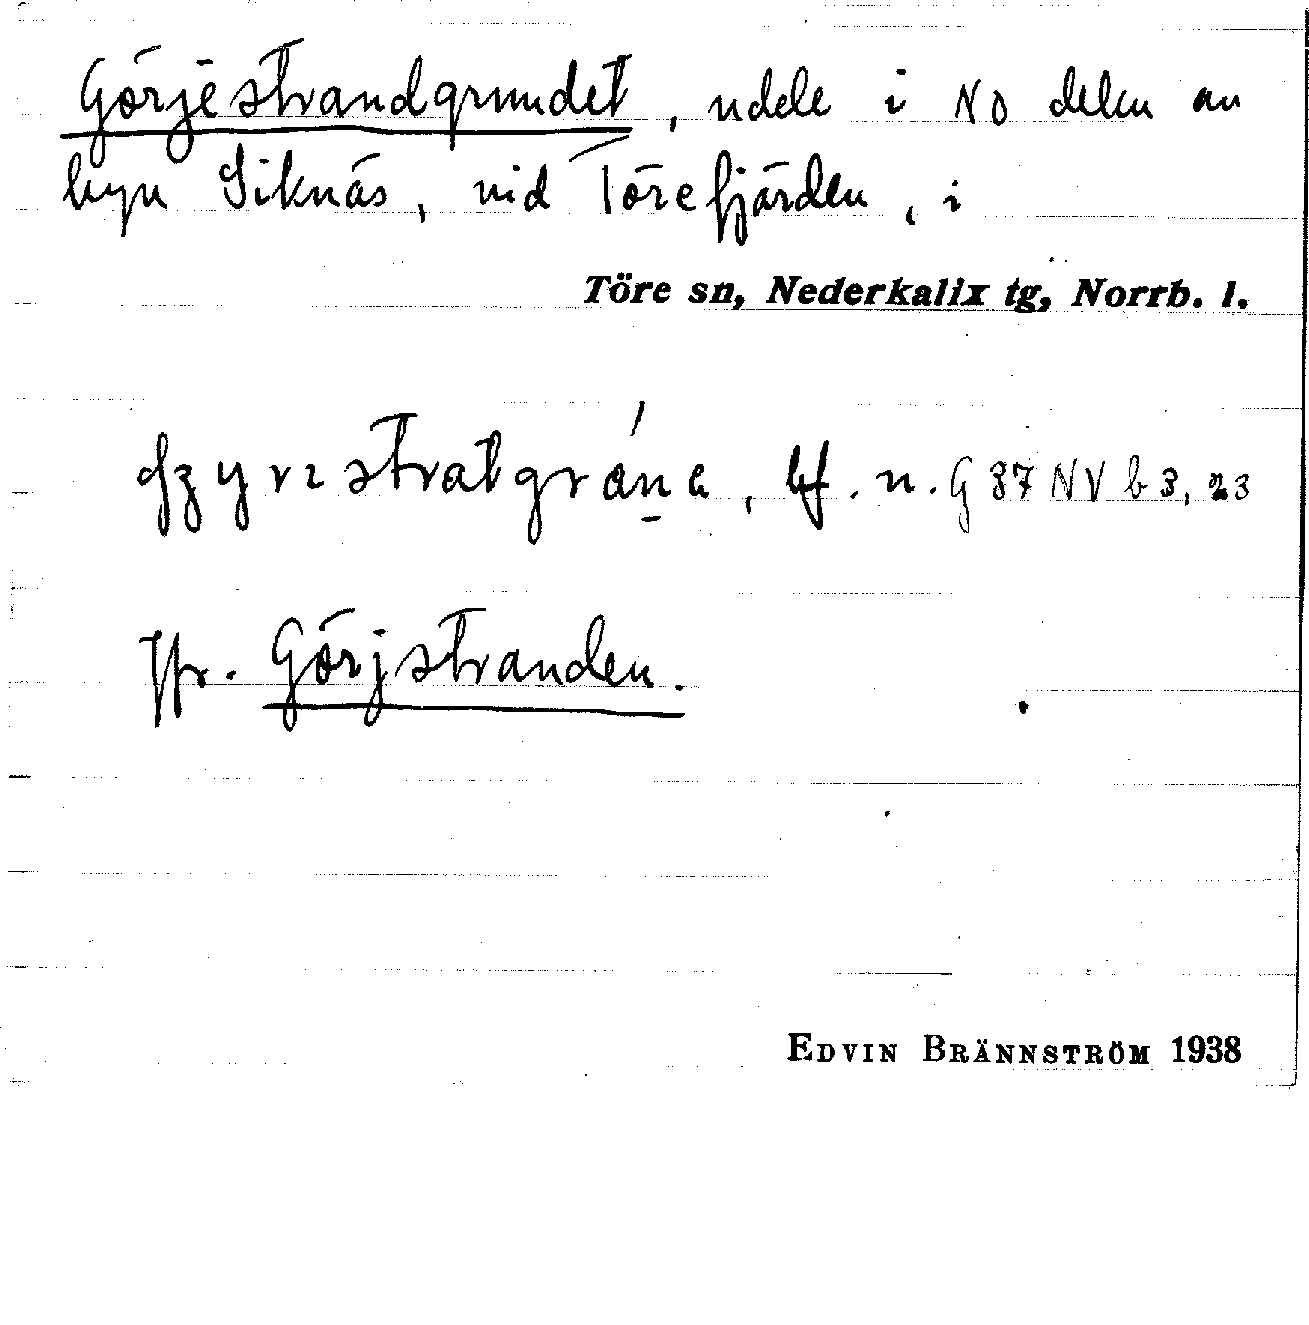 Görjestrandgrundet, udde i NO delen av
byn Siknäs, vid Törefjärden, i
Töre sn, Nederkalix tg, Norrb. l.
bf. n. G 87 NV b 3, 23
Jfr. Görjstranden.
EDVIN BRÄNNSTRÖM 1938